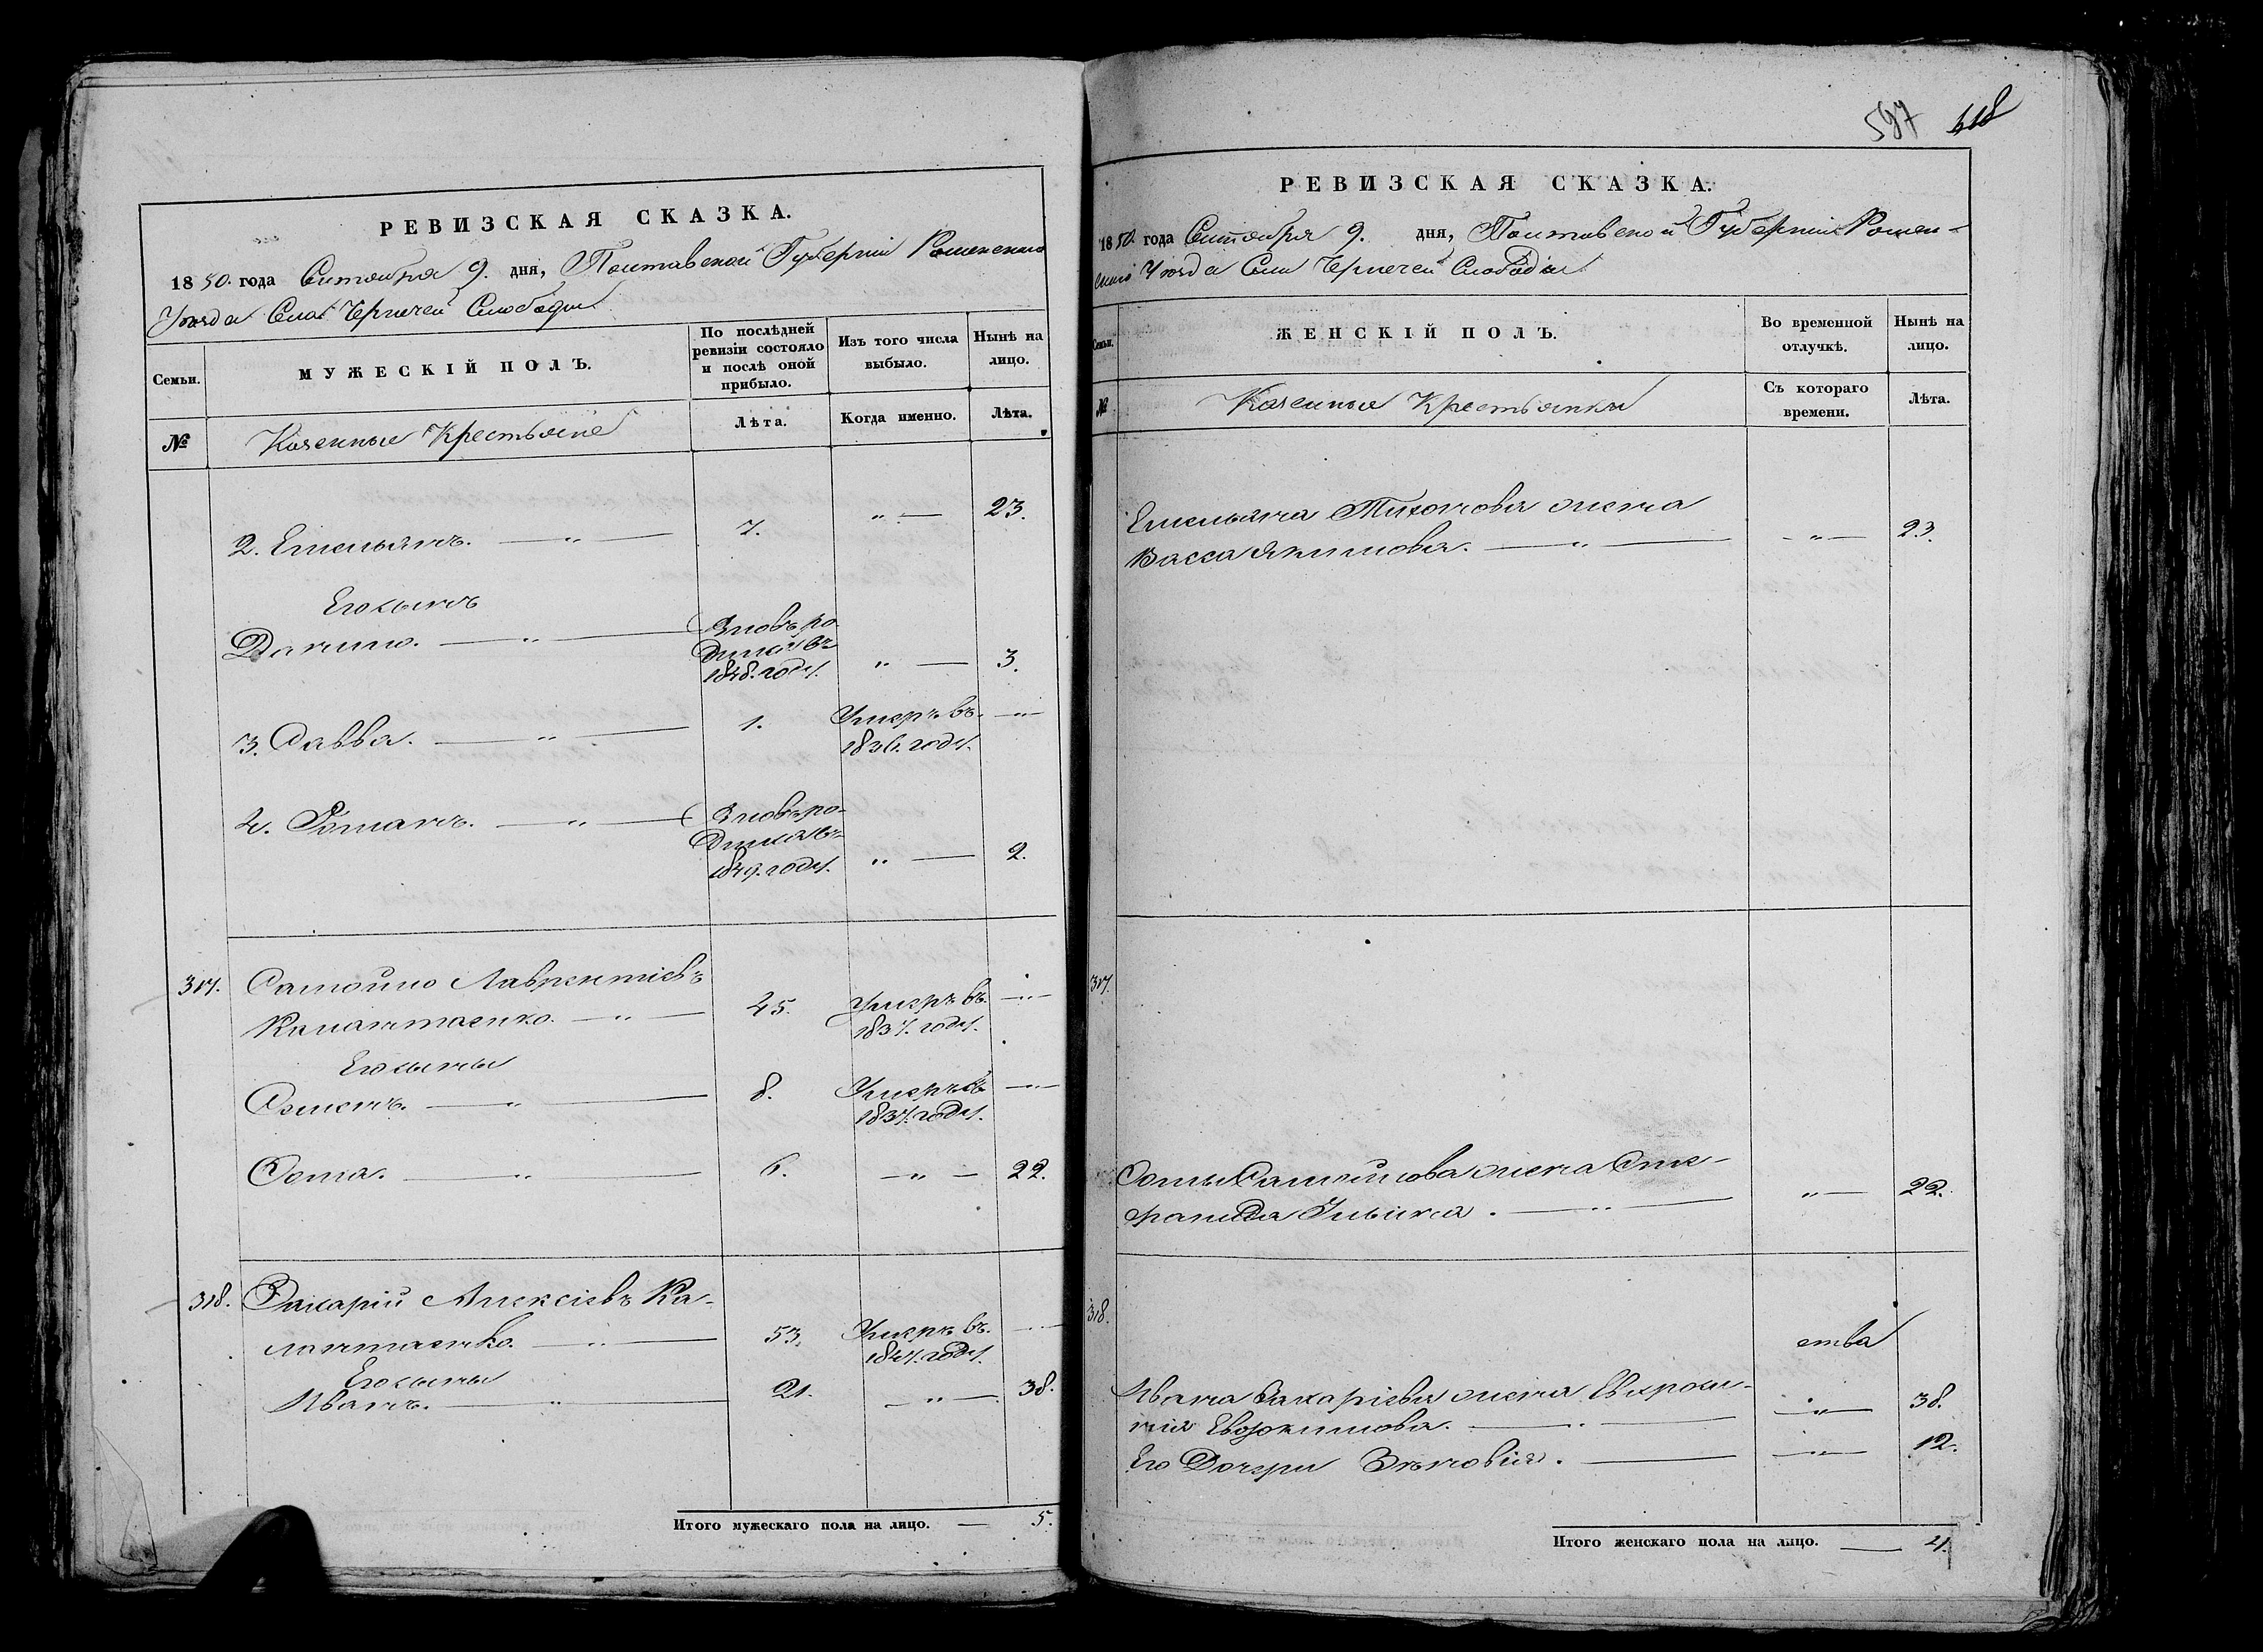 РЕВИЗСКАЯ СКАЗКА.
1850. года Сентября 9. дня, Полтавской Губерніи Роменского
Уѣзда Села Чернечей Слободы
Семьи.
МУЖЕСКІЙ ПОЛЪ.
По послѣдней ревизіи состояло и послѣ оной прибыло.
Изъ того числа выбыло.
Нынѣ на лицо.
№
Казенные Крестьяне
Лѣта.
Когда именно.
Лѣта.
2. Емельянъ. — „ — 7. „ — 23.
Его сынъ
Данило. — „ — Вновь ро-
дился въ
1848. году. „ — 3.
3. Савва. — „ — 1. Умеръ въ — „ —
1836. году.
4. Романъ. — „ — Вновь ро-
дился въ
1849. году. „ — 2.
317. Самойло Лаврентіевъ
Калантаенко. — „ — 45. Умеръ въ — „ —
1837. году.
Его сыны
Семенъ. — „ — 8. Умеръ въ — „ —
1837. году.
Сома. — „ — 6. — „ — 22.
318. Захарій Алексіевъ Ка-
лантаенко. — „ — 53. Умеръ въ — „ —
1847. году.
Его сыны
Иванъ. — „ — 21. — „ — 38.
Итого мужескаго пола на лицо. — 5.
597 618
РЕВИЗСКАЯ СКАЗКА.
1850. года Сентября 9. дня, Полтавской Губерніи Ромен-
ского Уѣзда Села Чернечей Слободы
Семьи.
ЖЕНСКІЙ ПОЛЪ.
Во временной отлучкѣ.
Нынѣ на лицо.
№
Казенные Крестьянки
Съ котораго времени.
Лѣта.
Емельяна Тихонова жена
Васса Якимова. — „ — — „ — 23.
317.
Сомы Самойлова жена Сте-
фанида Ильина. — „ — „ — 22.
318.
ства
Ивана Захаріева жена Евфроси-
нія Евдокимова. — „ — — „ — 38.
Его Дочери Зѣновія. — — „ — 12.
Итого женскаго пола на лицо. — 4.